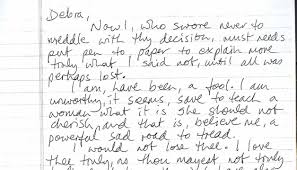 Debra,
Now I, who swore never to
meddle with thy decision, must needs
put pen to paper to explain more
truly what I said not, until all was
perhaps lost.
I am, have been, a fool. I am
unworthy, it seems, save to teach a
woman what it is she should not
cherish, and that is, believe me, a
powerful sad road to tread.
I would not lose thee. I love
thee truly, as thou mayest not truly